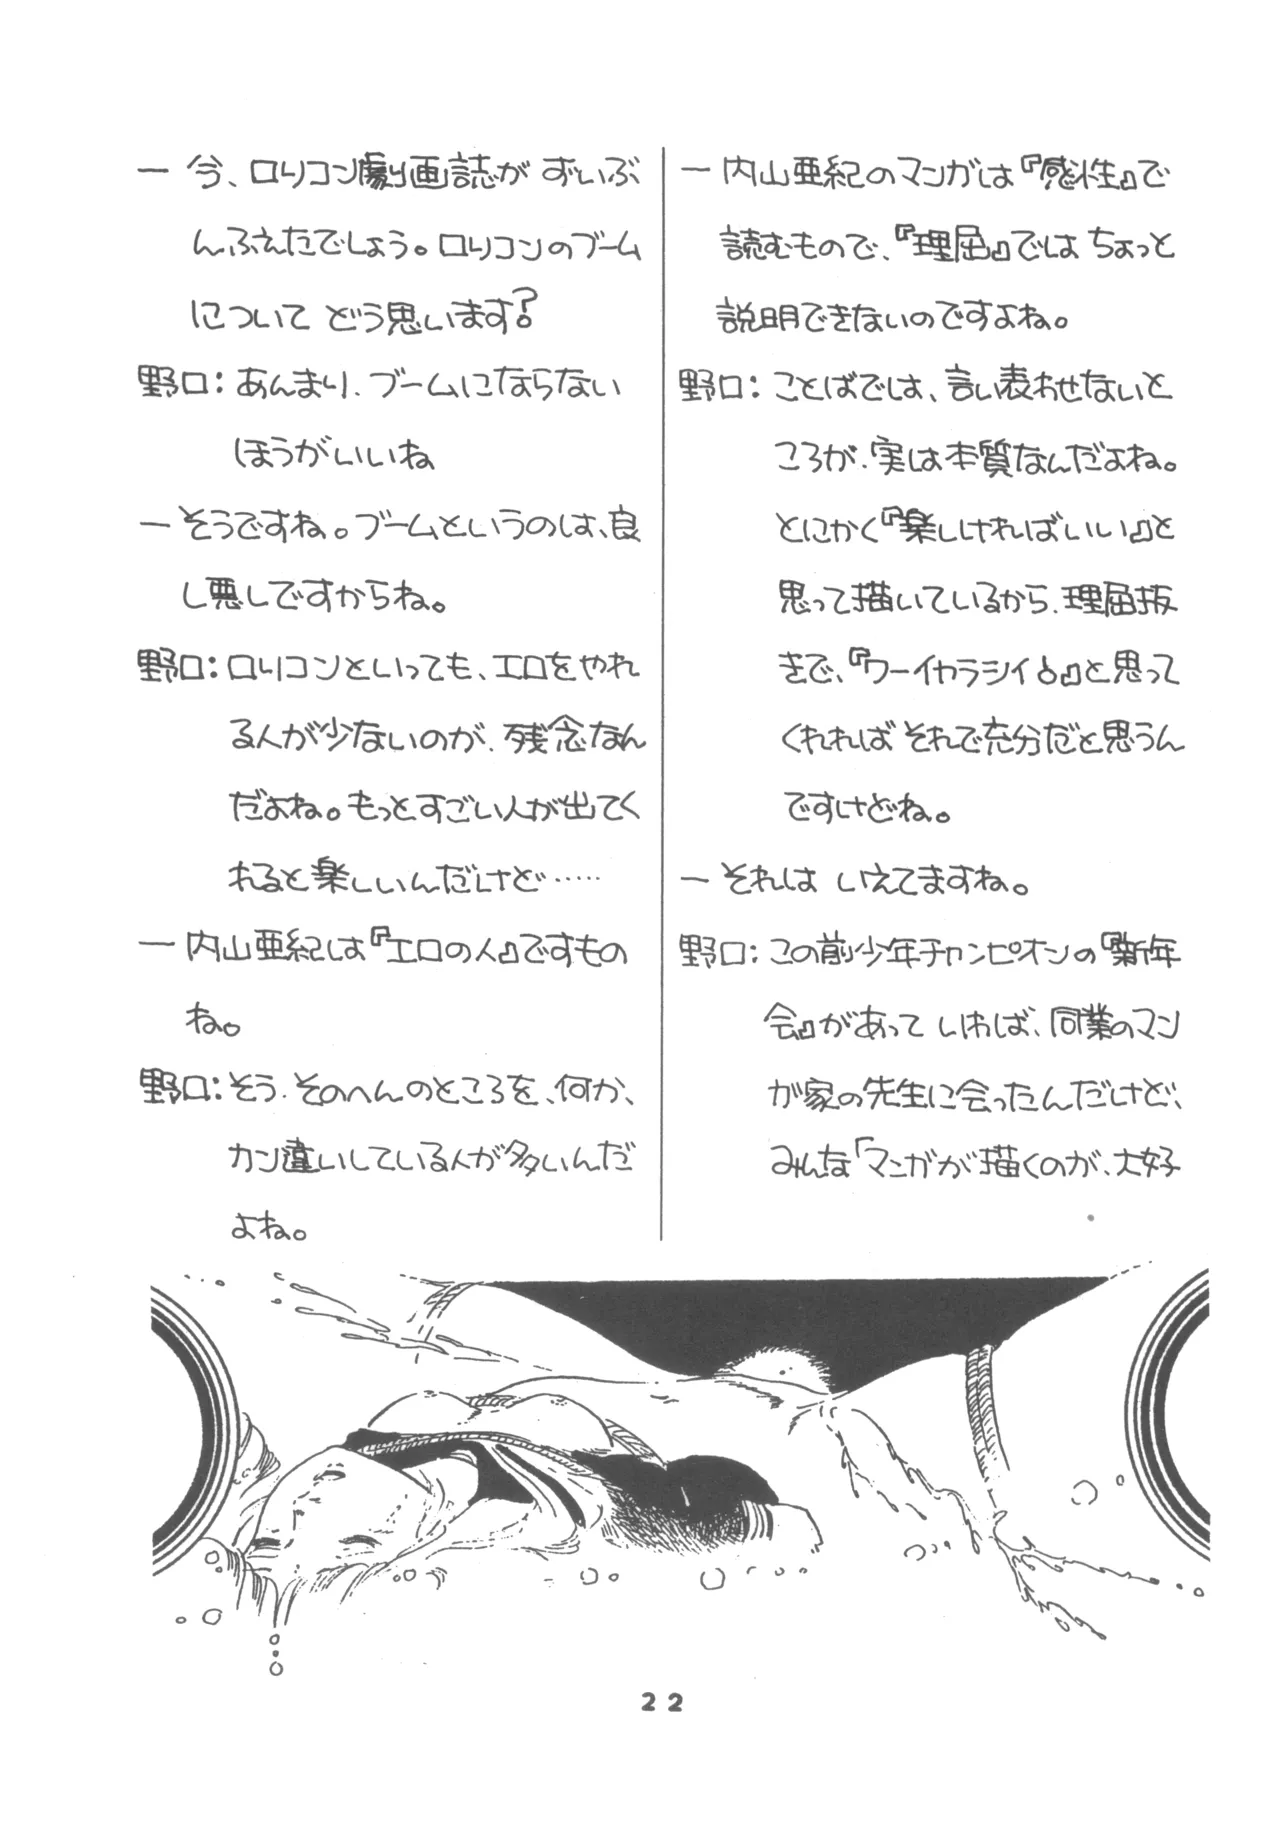 — 今、ロリコン劇画誌が ずいぶ
んふえたでしょう。ロリコンのブーム
について どう思います?
野口: あんまり、ブームにならない
ほうがいいね
— そうですね。ブームというのは、良
し悪しですからね。
野口: ロリコンといっても、エロをやれ
る人が少ないのが、残念なん
だよね。もっとすごい人が出てく
れると楽しいんだけど……
— 内山亜紀は『エロの人』ですもの
ね。
野口: そう、そのへんのところを、何か、
カン違いしている人が多いんだ
よね。
— 内山亜紀のマンガは『感性』で
読むもので、『理屈』では ちょっと
説明できないのですよね。
野口: ことばでは、言い表わせないと
ころが、実は本質なんだよね。
とにかく『楽しければいい』と
思って描いているから、理屈抜
きで、『ワーイカラシイ♂』と思って
くれれば それで充分だと思うん
ですけどね。
— それは いえてますね。
野口: この前少年チャンピオンの『新年
会』があって いれば、同業のマン
が家の先生に会ったんだけど、
みんな「マンガが描くのが、大好
22